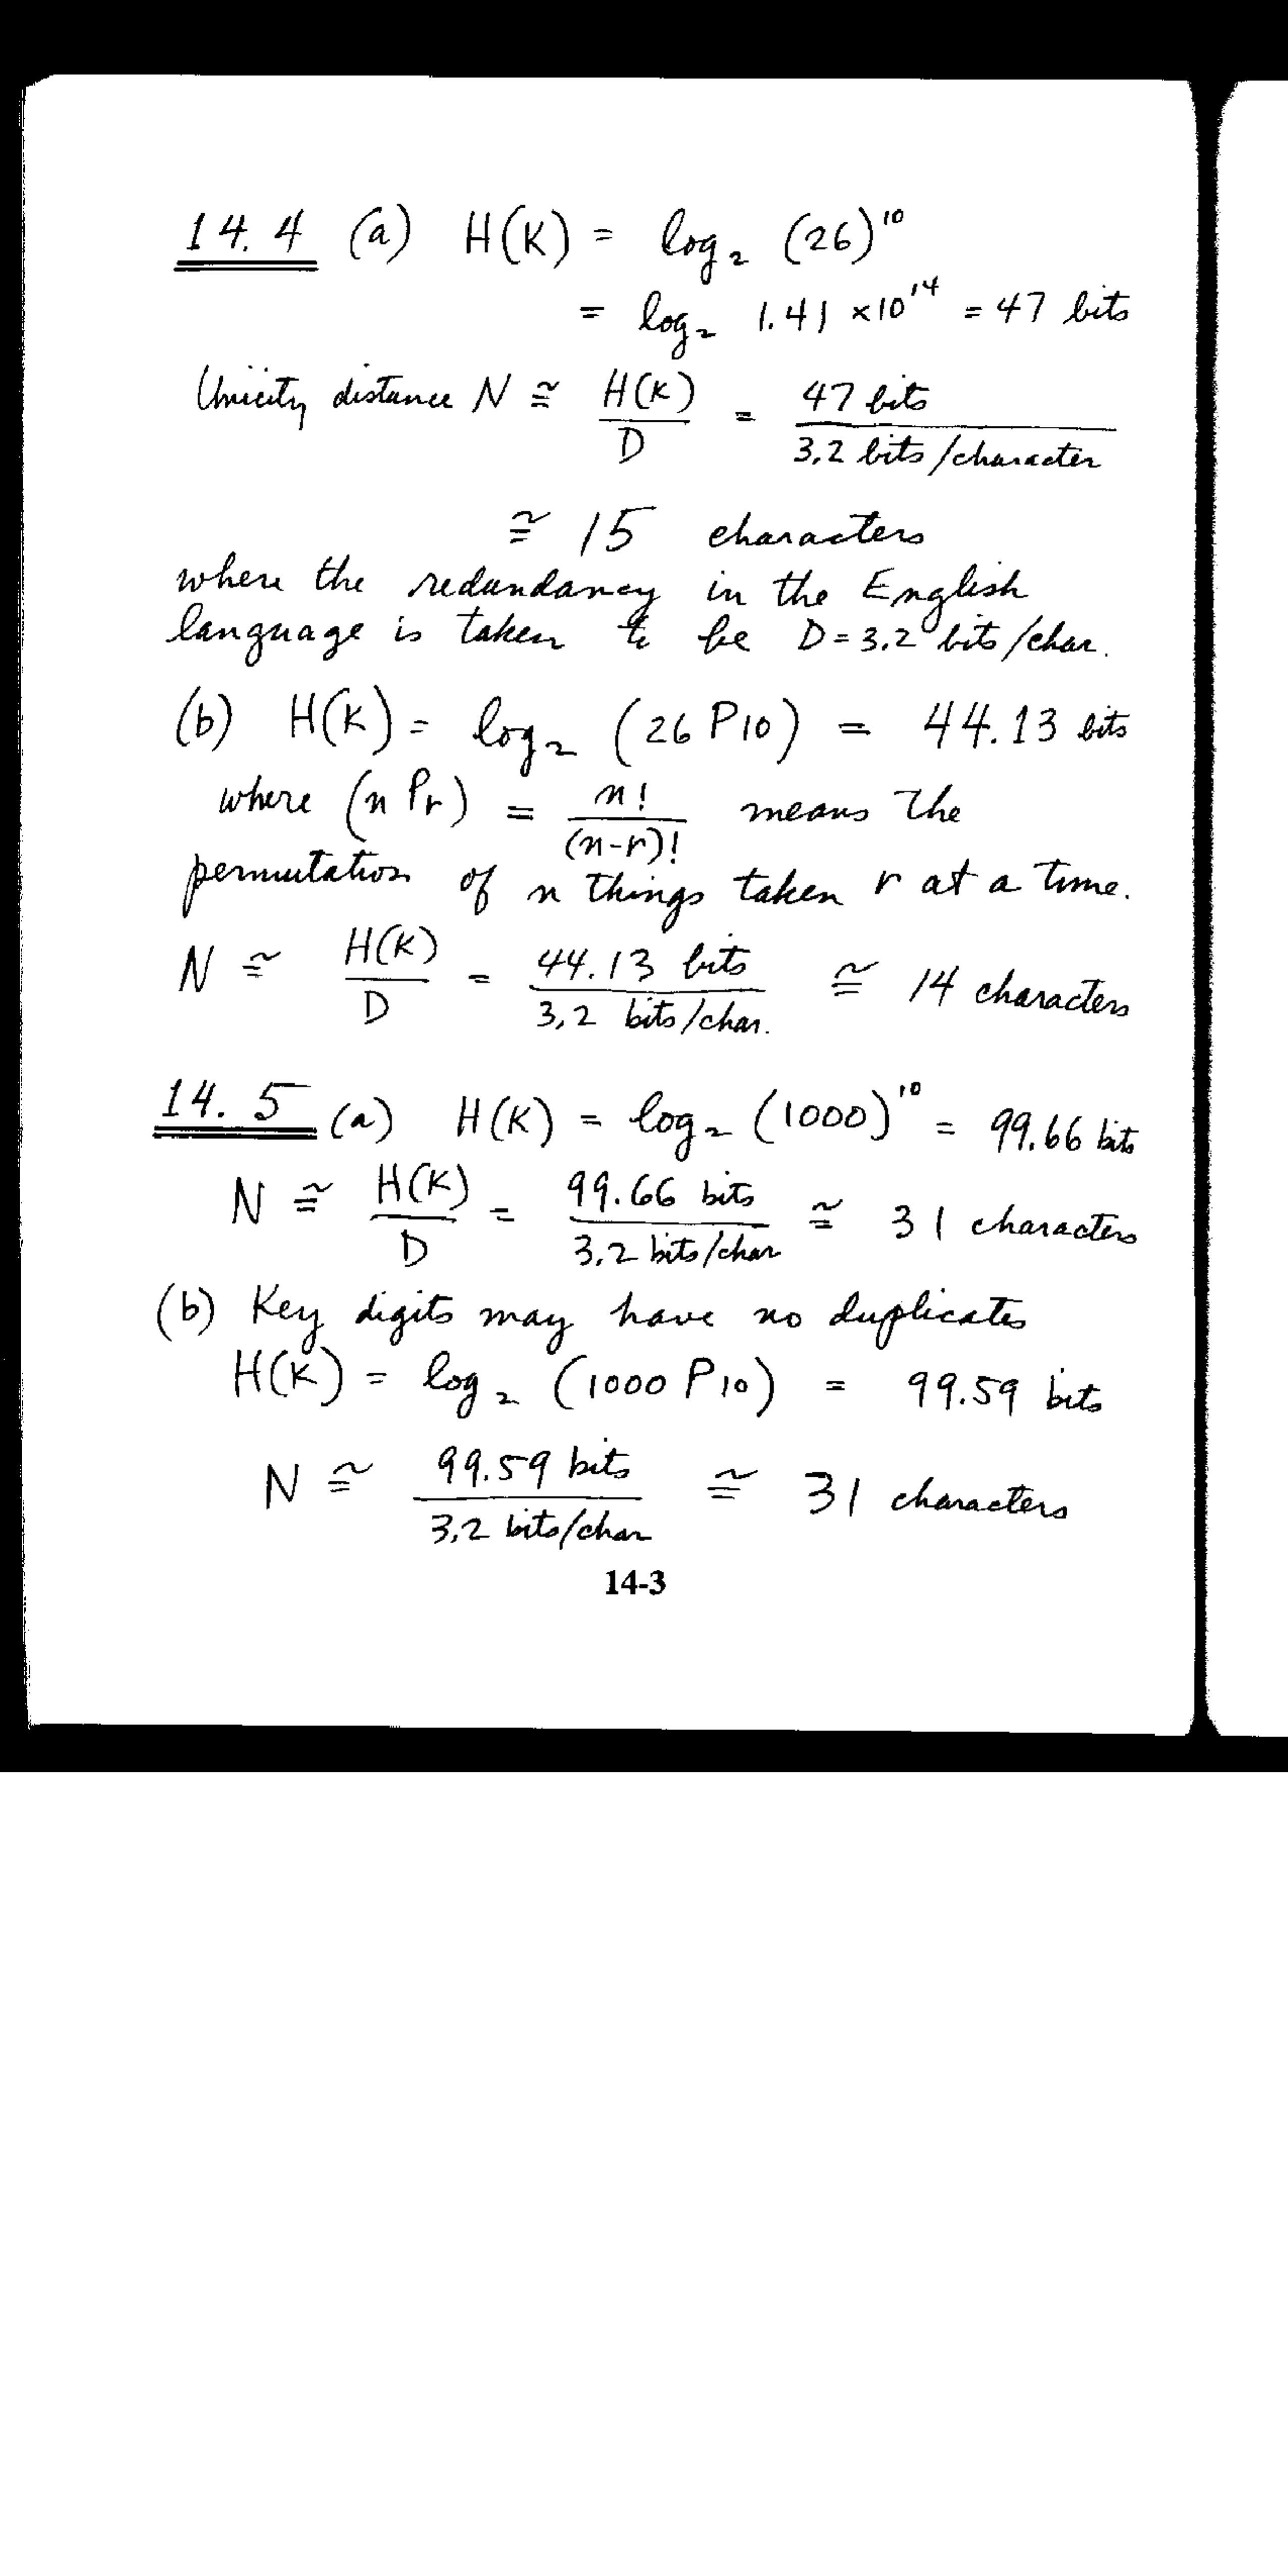 14.4 (a) H(K) = log₂ (26)¹⁰
= log₂ 1.41 ×10¹⁴ = 47 bits
Unicity distance N ≅ H(K)/D = 47 bits / 3.2 bits/character
≅ 15 characters
where the redundancy in the English
language is taken to be D = 3.2 bits/char.
(b) H(K) = log₂ (26 P10) = 44.13 bits
where (n Pr) = n!/(n-r)! means the
permutation of n things taken r at a time.
N ≅ H(K)/D = 44.13 bits / 3.2 bits/char. ≅ 14 characters
14.5 (a) H(K) = log₂ (1000)¹⁰ = 99.66 bits
N ≅ H(K)/D = 99.66 bits / 3.2 bits/char ≅ 31 characters
(b) Key digits may have no duplicates
H(K) = log₂ (1000 P10) = 99.59 bits
N ≅ 99.59 bits / 3.2 bits/char ≅ 31 characters
14-3